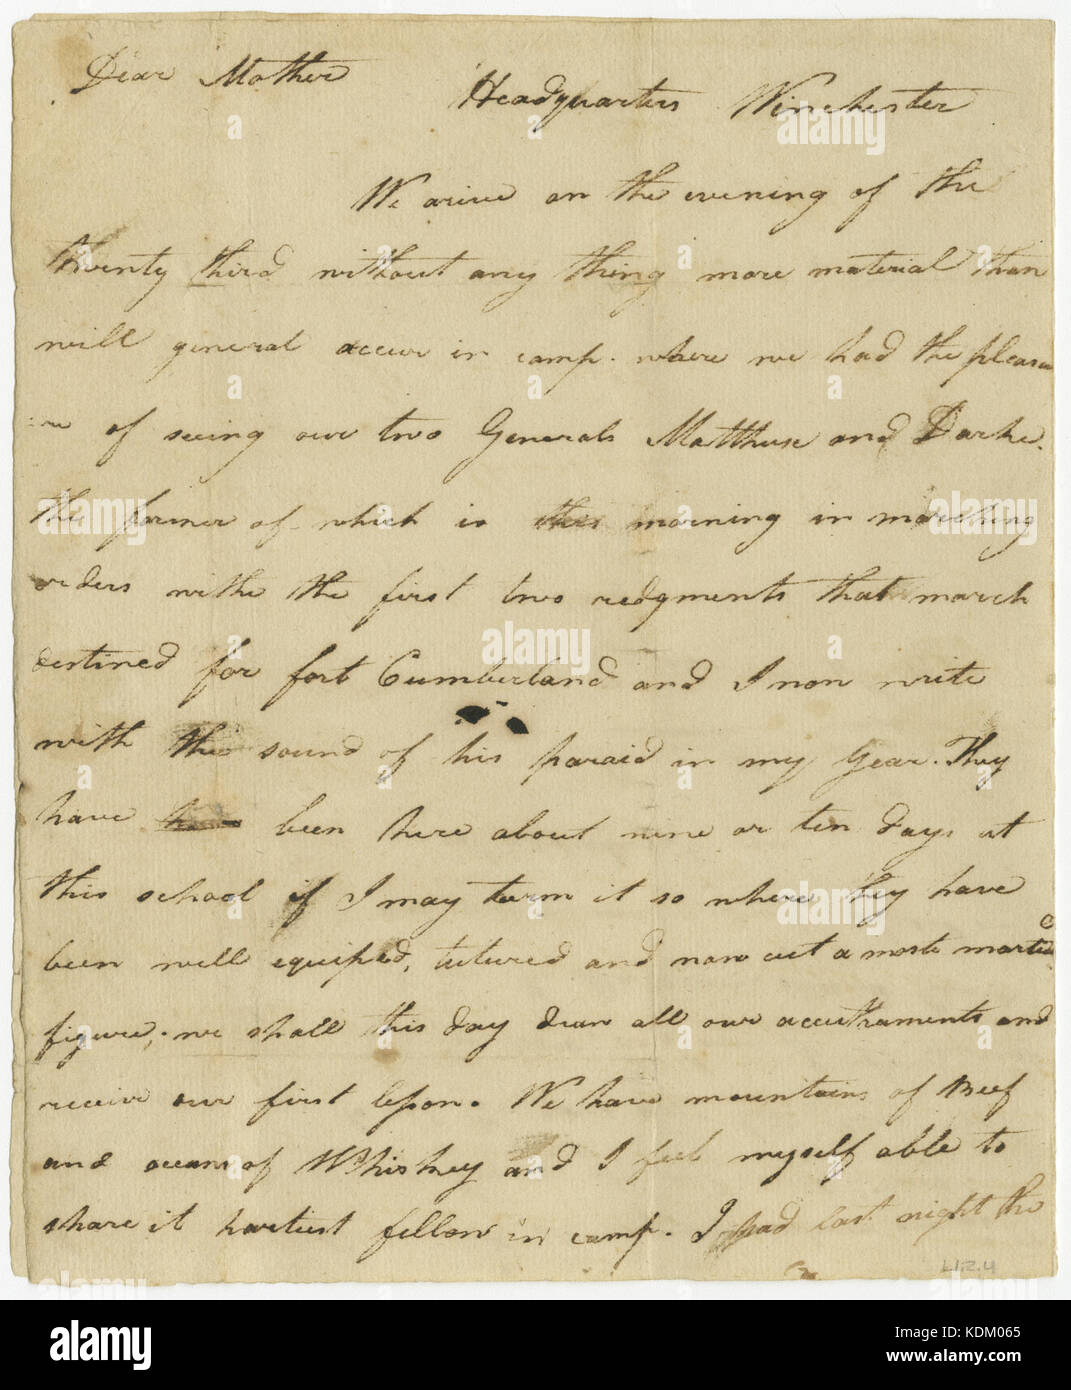 Dear Mother
Headquarters Winchester
We arive on the evening of the
twenty third without any thing more material than
will general occur in camp. where we had the pleasu
re of seeing our two Generals Matthuse and Darke.
the former of which is this morning in marching
orders withe the first two redgments that march
destined for fort Cumberland and I non write
with the sound of his paraid in my Gear. They
have been here about nine or ten days at
this school if I may turm it so where they have
been well equiped, tutured and now cut a moste martia
figure,. we shall this day draw all our accuthraments and
receive our first lesson. We have mountains of Beef
and oceans of Whiskey and I feel myself able to
share it hartiest fellow in camp. I had last night the
L1.2.4
alamy
Image ID: KDM065
www.alamy.com